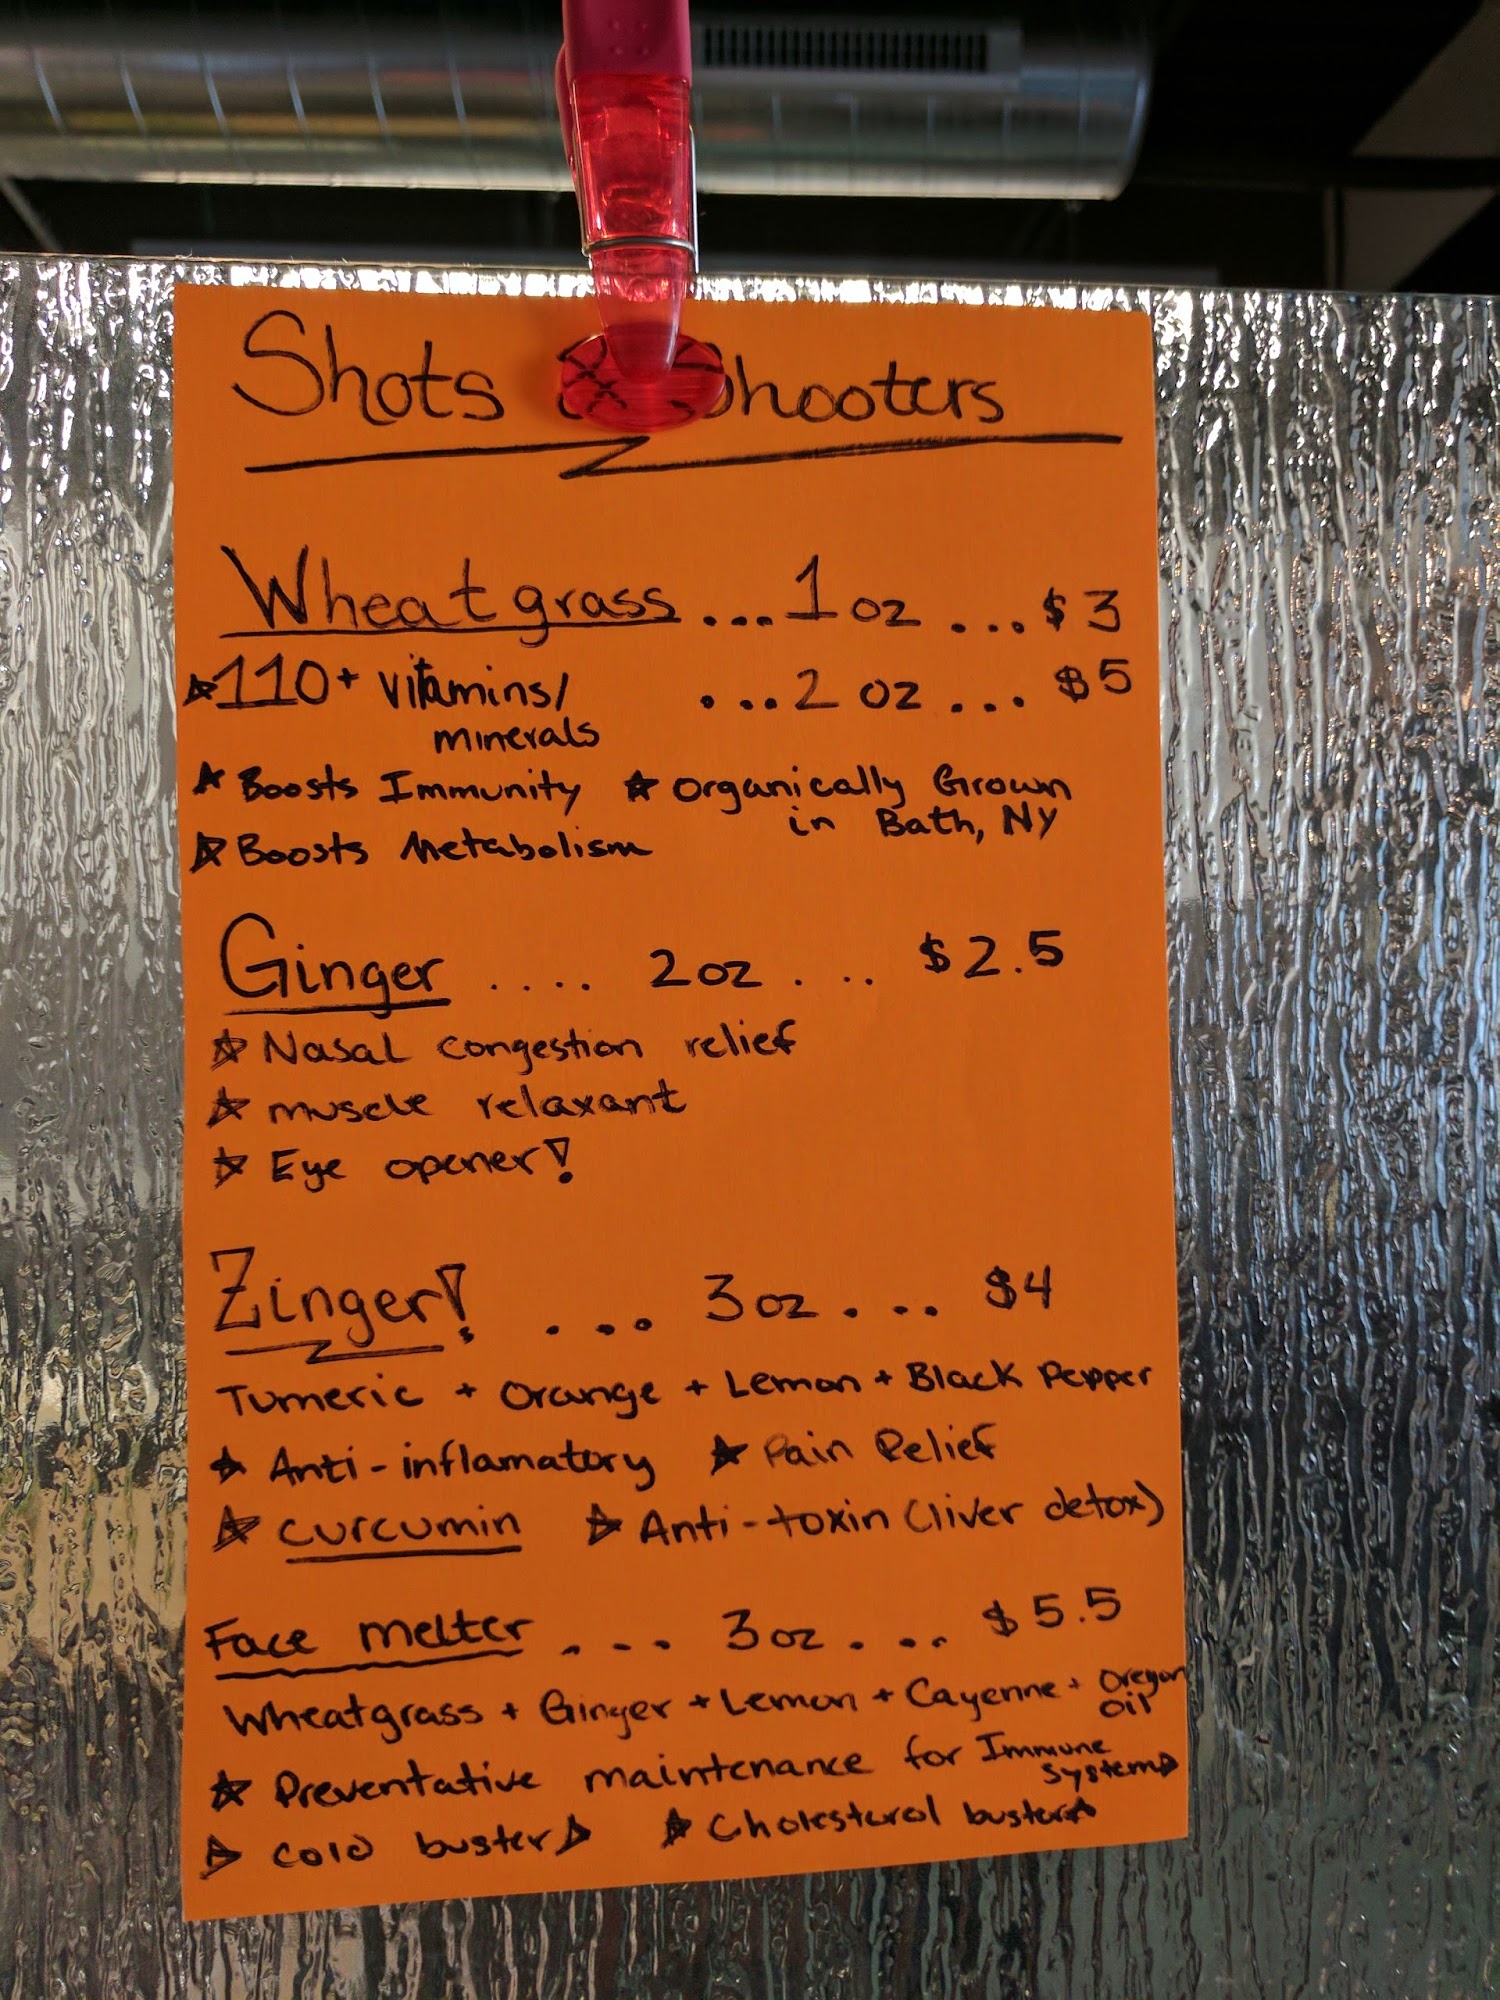 Shots & Shooters
Wheatgrass ... 1 oz ... $3
☆ 110+ vitamins/ ... 2 oz ... $5
minerals
☆ Boosts Immunity ☆ Organically Grown
in Bath, NY
☆ Boosts Metabolism
Ginger .... 2 oz . ... $2.5
☆ Nasal congestion relief
☆ muscle relaxant
☆ Eye opener!
Zinger! ... 3 oz ... $4
Tumeric + Orange + Lemon + Black Pepper
☆ Anti-inflamatory ☆ Pain Relief
☆ curcumin ☆ Anti-toxin (liver detox)
Face melter ... 3 oz ... $5.5
Wheatgrass + Ginger + Lemon + Cayenne + Oregon
oil
☆ Preventative maintenance for Immune
system☆
☆ Cold buster☆ ☆ Cholesturol buster☆